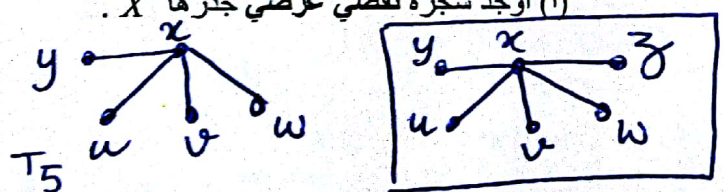 (أ) أوجد شجرة تقصي عرضي جذرها X .
y x
u v w
T5
y x z
u v w